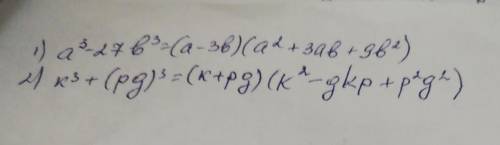 1) a³-27b³=(a-3b)(a²+3ab+9b²)
2) k³+(pg)³=(k+pg)(k²-gkp+p²g²)